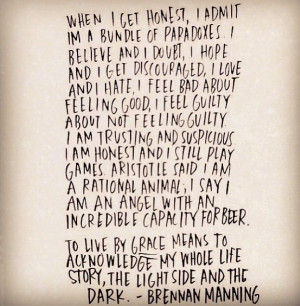 WHEN I GET HONEST, I ADMIT
IM A BUNDLE OF PAPADOXES. I
BELIEVE AND I DOUBT, I HOPE
AND I GET DISCOURAGED, I LOVE
AND I HATE. I FEEL BAD ABOUT
FEELING GOOD, I FEEL GUILTY
ABOUT NOT FEELING GUILTY
I AM TRUSTING AND SUSPICIOUS.
I AM HONEST AND I STILL PLAY
GAMES. ARISTOTLE SAID I AM
A RATIONAL ANIMAL; I SAY I
AM AN ANGEL WITH AN
INCREDIBLE CAPACITY FOR BEER.
TO LIVE BY GRACE MEANS TO
ACKNOWLEDGE MY WHOLE LIFE
STORY, THE LIGHT SIDE AND THE
DARK. - BRENNAN MANNING